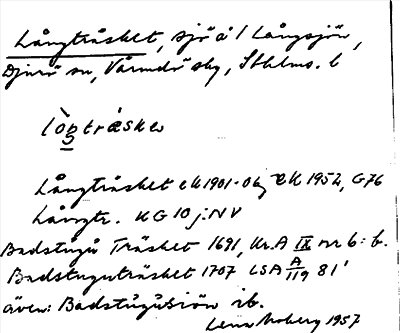 Långträsket, sjö å l Långsjön,
Djurö sn, Värmdö sky, Sthlms. l
lògträsket
Långträsket EK 1901-06, EK 1952, G76
Långtr. KG 10 j. NV
Badstugu Träsket 1691, Kr.A IX nr 6: b.
Badstuguträsket 1707 LSA A/119 81'
även: Badstugusiön ib.
Lena Moberg 1957